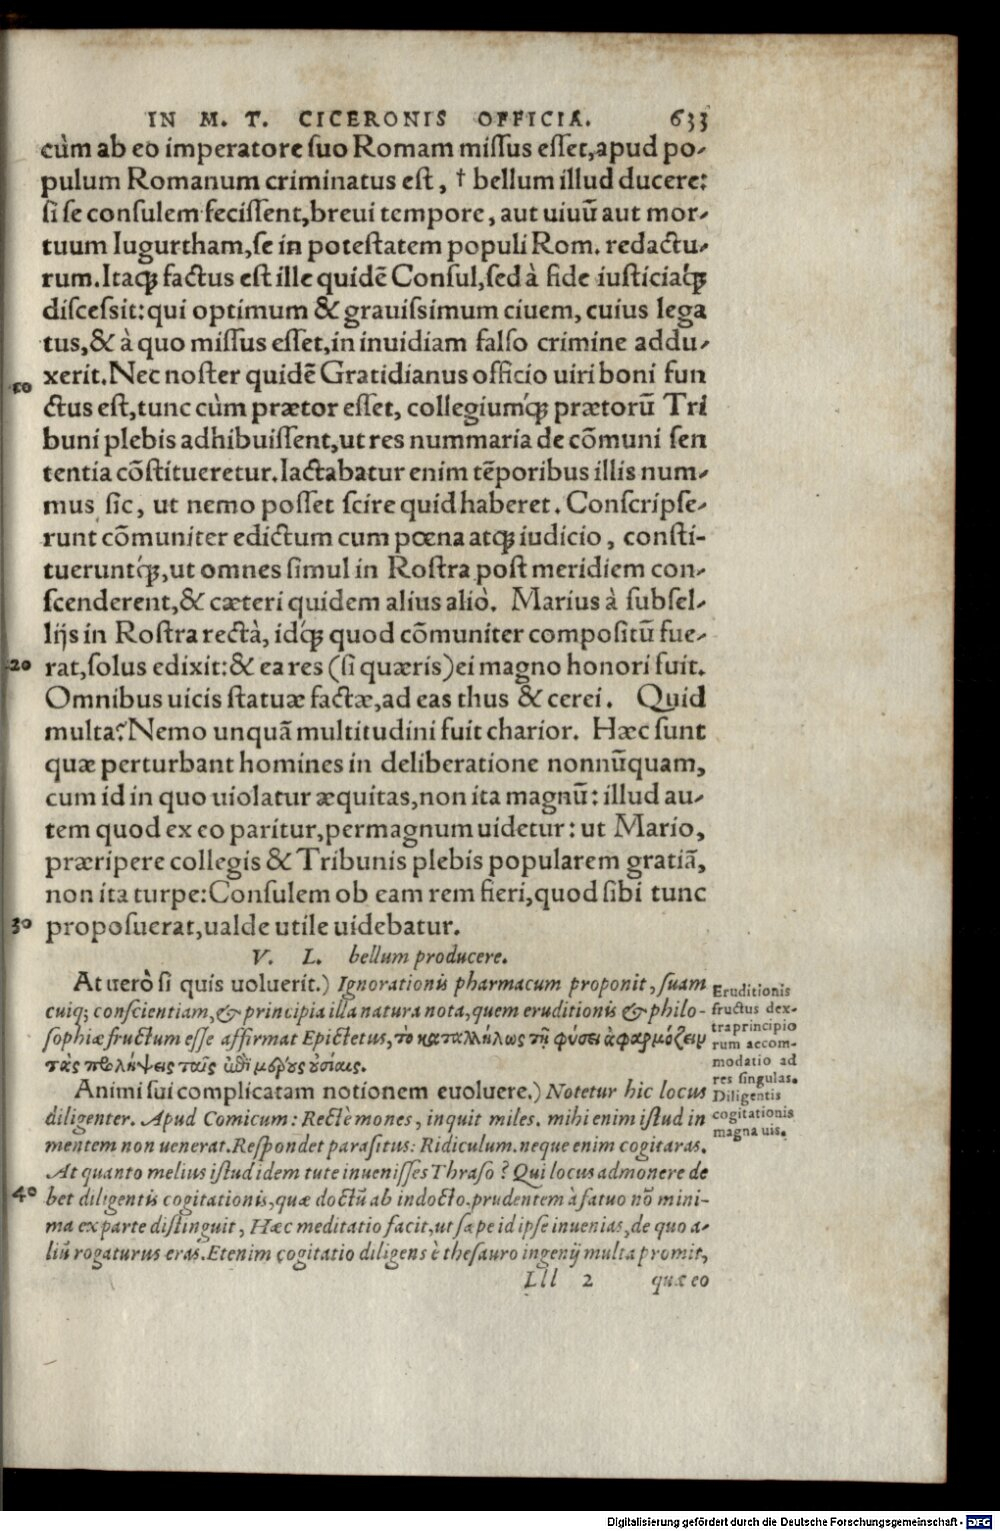 IN M. T. CICERONIS OFFICIA. 633
cùm ab eo imperatore suo Romam missus esset, apud po-
pulum Romanum criminatus est, † bellum illud ducere:
si se consulem fecissent, breui tempore, aut uiuũ aut mor-
tuum Iugurtham, se in potestatem populi Rom. redactu-
rum. Itaq; factus est ille quidẽ Consul, sed à fide iusticiaq́;
discessit: qui optimum & grauissimum ciuem, cuius lega
tus, & à quo missus esset, in inuidiam falso crimine addu-
xerit. Nec noster quidẽ Gratidianus officio uiri boni fun
10 ctus est, tunc cùm prætor esset, collegiumq́; prætorũ Tri
buni plebis adhibuissent, ut res nummaria de cõmuni sen
tentia cõstitueretur. Iactabatur enim tẽporibus illis num-
mus sic, ut nemo posset scire quid haberet. Conscripse-
runt cõmuniter edictum cum pœna atq; iudicio, consti-
tueruntq́;, ut omnes simul in Rostra post meridiem con-
scenderent, & cæteri quidem alius aliò. Marius à subsel-
lijs in Rostra rectà, idq́; quod cõmuniter compositũ fue-
20 rat, solus edixit: & ea res (si quæris) ei magno honori fuit.
Omnibus uicis statuæ factæ, ad eas thus & cerei. Quid
multa? Nemo unquã multitudini fuit charior. Hæc sunt
quæ perturbant homines in deliberatione nonnũquam,
cum id in quo uiolatur æquitas, non ita magnũ: illud au-
tem quod ex eo paritur, permagnum uidetur: ut Mario,
præripere collegis & Tribunis plebis popularem gratiã,
non ita turpe: Consulem ob eam rem fieri, quod sibi tunc
30 proposuerat, ualde utile uidebatur.
V. L. bellum producere.
At uerò si quis uoluerit.) Ignorationis pharmacum proponit, suam
cuiq; conscientiam, & principia illa natura nota, quem eruditionis & philo-
sophiæ fructum esse affirmat Epictetus, τὸ καταλλήλως τῇ φύσει ἀφαρμόζειν
τὰς προλήψεις ταῖς ἐπὶ μέρους οὐσίαις.
Eruditionis
fructus dex-
tra principio
rum accom-
modatio ad
res singulas.
Animi sui complicatam notionem euoluere.) Notetur hic locus
diligenter. Apud Comicum: Rectè mones, inquit miles. mihi enim istud in
mentem non uenerat. Respondet parasitus: Ridiculum. neque enim cogitaras.
At quanto melius istud idem tute inuenisses Thraso? Qui locus admonere de
40 bet diligentis cogitationis, quæ doctũ ab indocto. prudentem à fatuo nõ mini-
ma ex parte distinguit, Hæc meditatio facit, ut sæpe id ipse inuenias, de quo a-
liũ rogaturus eras. Etenim cogitatio diligens è thesauro ingenij multa promit,
Diligentis
cogitationis
magna uis.
Lll 2 quæ eo
Digitalisierung gefördert durch die Deutsche Forschungsgemeinschaft - DFG